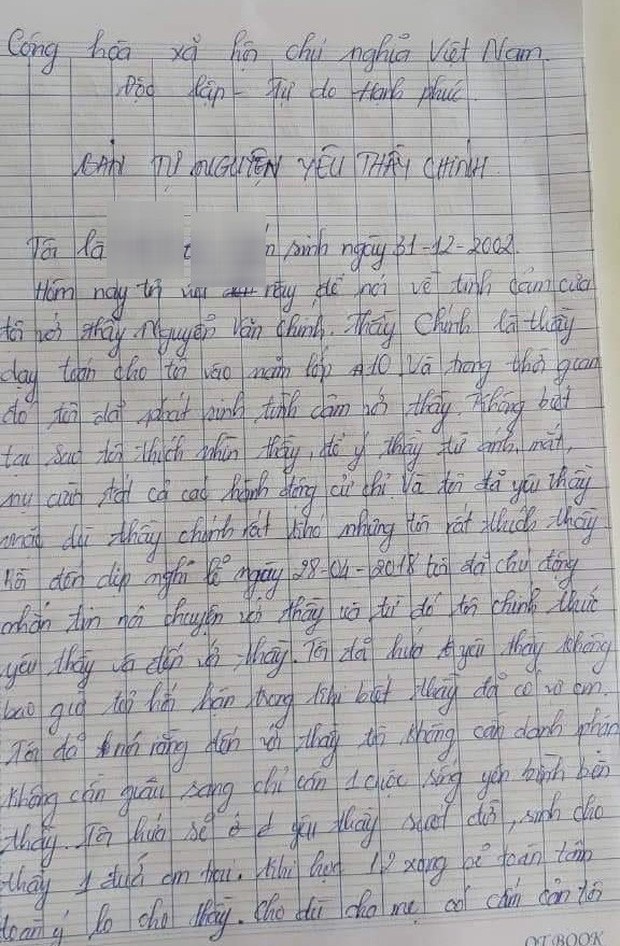 Cộng hòa xã hội chủ nghĩa Việt Nam.
Độc lập - Tự do Hạnh phúc.
BẢN TỰ NGUYỆN YÊU THẦY CHÍNH
Tôi là sinh ngày 31-12-2002.
Hôm nay tôi này để nói về tình cảm của
tôi với thầy Nguyễn Văn Chính. Thầy Chính là thầy
dạy toán cho tôi vào năm lớp 10. Và trong thời gian
đó tôi đã phát sinh tình cảm với thầy. Không biết
tại sao tôi thích nhìn thầy, để ý thầy từ ánh mắt,
nụ cười tất cả các hành động cử chỉ. Và tôi đã yêu thầy
mặc dù thầy chính rất khó nhưng tôi rất thích thầy.
đến dịp nghỉ lễ ngày 28-04-2018 tôi đã chủ động
nhắn tin nói chuyện với thầy và từ đó tôi chính thức
yêu thầy và đến với thầy. Tôi đã hứa yêu thầy không
bao giờ tôi hối hận trong khi biết thầy đã có vợ con.
Tôi đã nói rằng đến với thầy tôi không cần danh phận
không cần giàu sang chỉ cần 1 cuộc sống yên bình bên
thầy. Tôi hứa sẽ ở yêu thầy suốt đời, sinh cho
thầy 1 đứa con trai. Khi học 12 xong sẽ toàn tâm
toàn ý lo cho thầy. Cho dù cha mẹ có cấm cản tôi
OT.BOOK